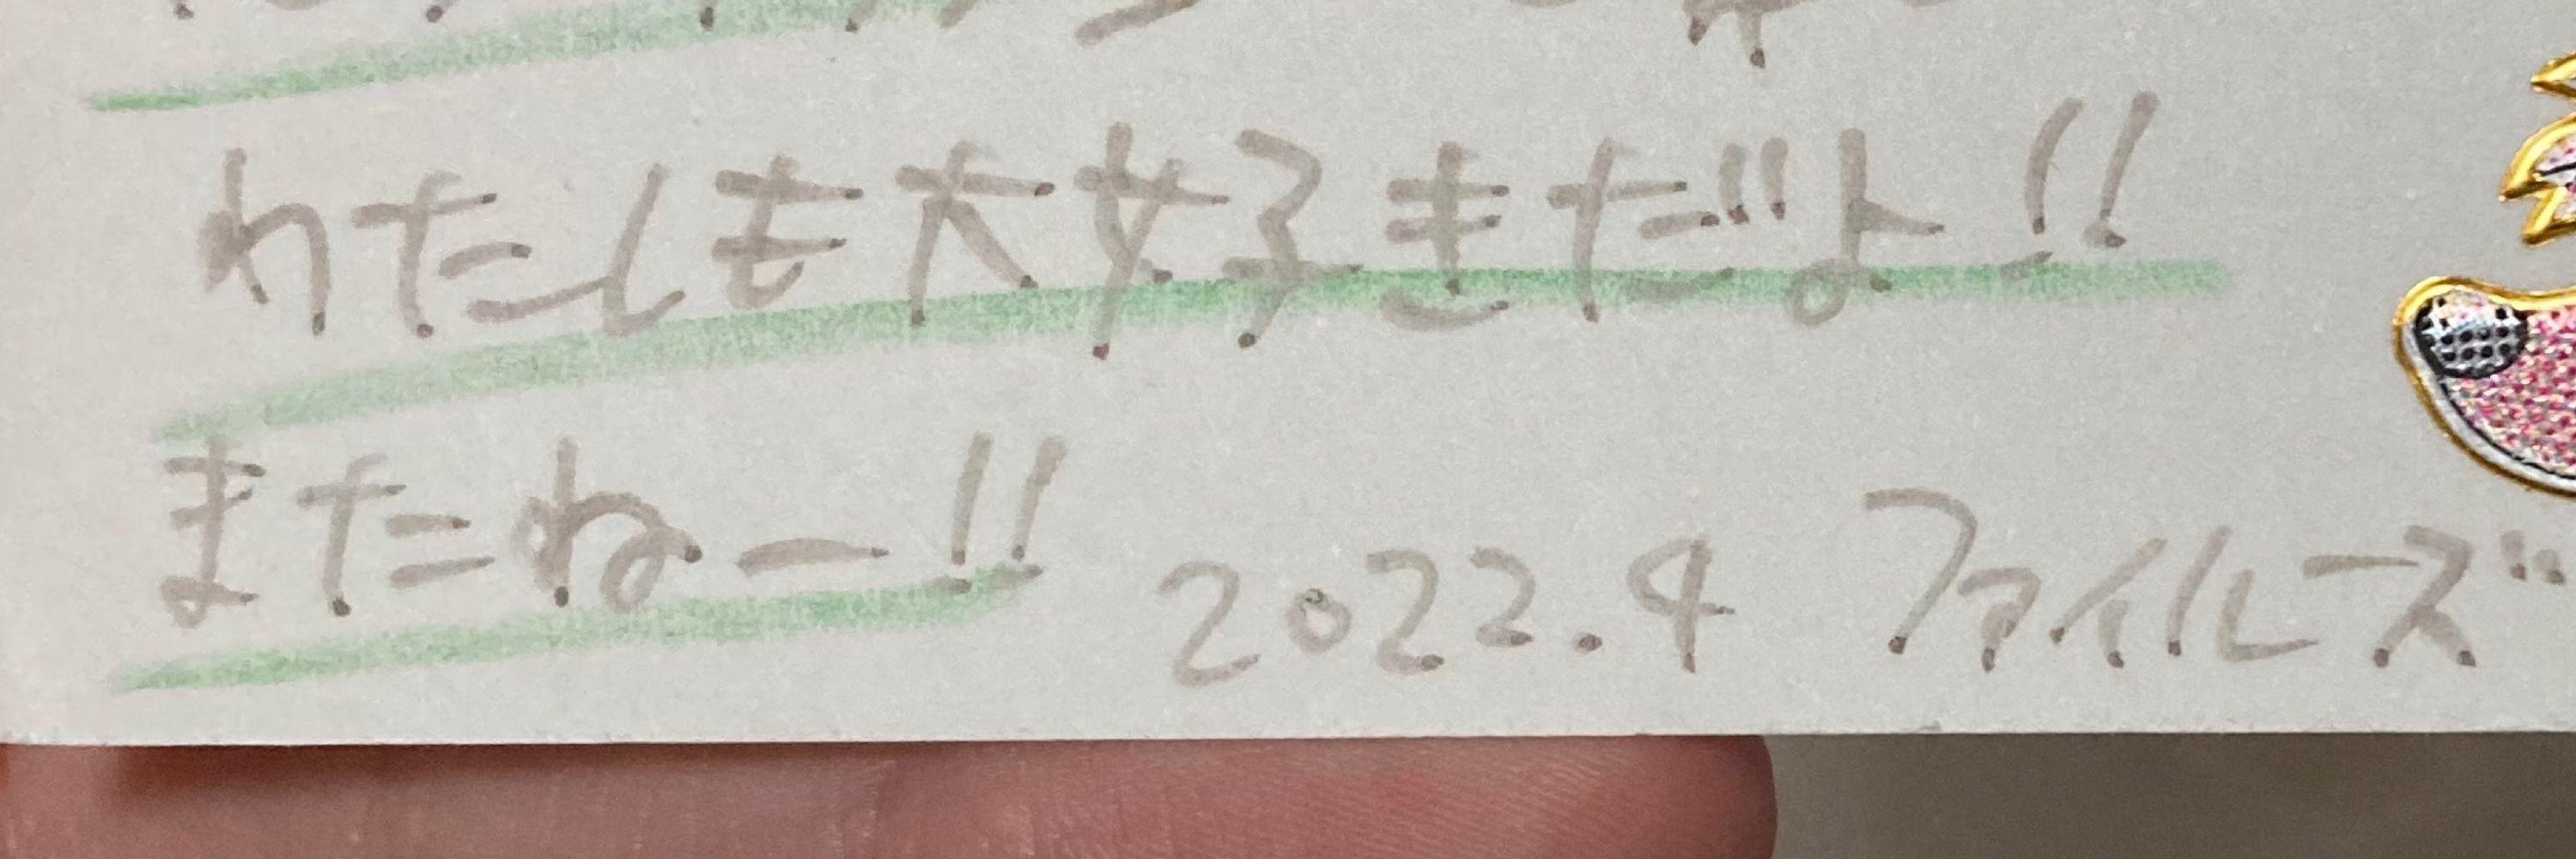 わたしも大好きだよ!!
またねー!!
2022.4 ファイルーズ